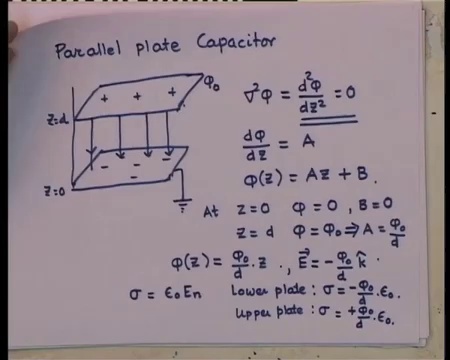 Parallel plate Capacitor
φ₀
+ + +
z=d
- - -
- -
-
z=0
∇²φ = d²φ/dz² = 0
dφ/dz = A
φ(z) = Az + B.
At z=0 φ=0, B=0
z=d φ=φ₀ ⇒ A = φ₀/d
φ(z) = φ₀/d . z , E⃗ = - φ₀/d k̂
σ = ε₀En Lower plate : σ = -φ₀/d . ε₀.
Upper plate : σ = +φ₀/d . ε₀.